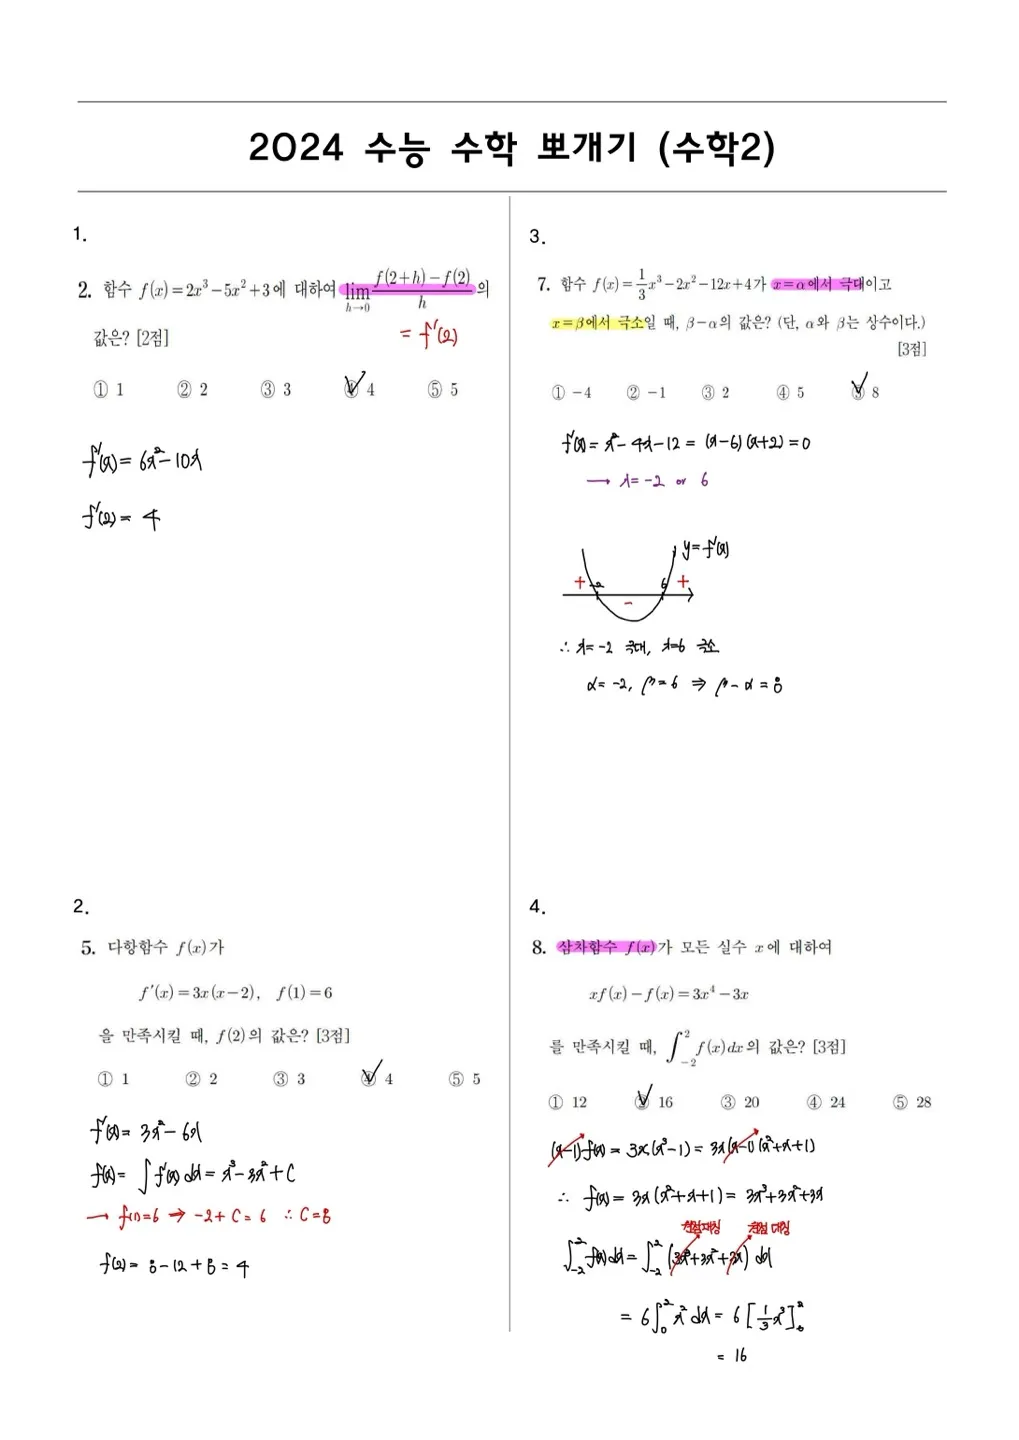 2024 수능 수학 뽀개기 (수학2)
1.
2. 함수 f(x)=2x³−5x²+3에 대하여 lim h→0 f(2+h)−f(2) / h 의
값은? [2점]
= f'(2)
① 1 ② 2 ③ 3 ④ 4 ⑤ 5
f'(x)= 6x²−10x
f'(2)= 4
2.
5. 다항함수 f(x)가
f'(x)=3x(x−2), f(1)=6
을 만족시킬 때, f(2)의 값은? [3점]
① 1 ② 2 ③ 3 ④ 4 ⑤ 5
f'(x)= 3x²−6x
f(x)= ∫f'(x)dx= x³−3x²+C
→ f(1)=6 ⇒ −2+C=6 ∴ C=8
f(2)= 8−12+8=4
3.
7. 함수 f(x)=1/3x³−2x²−12x+4가 x=α에서 극대이고
x=β에서 극소일 때, β−α의 값은? (단, α와 β는 상수이다.)
[3점]
① −4 ② −1 ③ 2 ④ 5 ⑤ 8
f'(x)= x²−4x−12= (x−6)(x+2)=0
→ x= −2 or 6
y=f'(x)
+ −2 6 +
−
∴ x=−2 극대, x=6 극소
α= −2, β=6 ⇒ β−α=8
4.
8. 삼차함수 f(x)가 모든 실수 x에 대하여
xf(x)−f(x)=3x⁴−3x
를 만족시킬 때, ∫₋₂² f(x)dx의 값은? [3점]
① 12 ② 16 ③ 20 ④ 24 ⑤ 28
(x−1)f(x)= 3x(x³−1)= 3x(x−1)(x²+x+1)
∴ f(x)= 3x(x²+x+1)= 3x³+3x²+3x
원점대칭 원점 대칭
∫₋₂² f(x)dx= ∫₋₂² (3x³+3x²+3x) dx
= 6∫₀² x² dx= 6[1/3x³]₀²
= 16